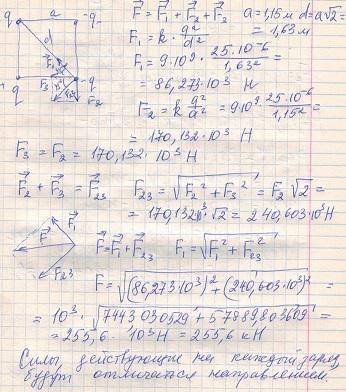 q a -q
d
F⃗₁
F₃
q -q
F₂
F⃗ = F⃗₁ + F⃗₂ + F⃗₃ a = 1,15 м d = a√2 =
= 1,63 м
F₁ = k · q²/d²
F₁ = 9·10⁹ · 25·10⁻⁶/1,63² =
= 86,273·10³ Н
F₂ = k q²/a² = 9·10⁹ · 25·10⁻⁶/1,15² =
= 170,132·10³ Н
F₃ = F₂ = 170,132·10³ Н
F⃗₂ + F⃗₃ = F⃗₂₃ F₂₃ = √(F₂² + F₃²) = F₂√2 =
= 170,132·10³·√2 = 240,603·10³ Н
F⃗ F⃗₁ F₂₃
F⃗ = F⃗₁ + F⃗₂₃ F₁ = √(F₁² + F₂₃²)
F = √((86,273·10³)² + (240,603·10³)²) =
= 10³·√(7443030529 + 57889803609) =
= 255,6·10³ Н = 255,6 кН
Силы, действующие на каждый заряд
будут отличаться направлением.